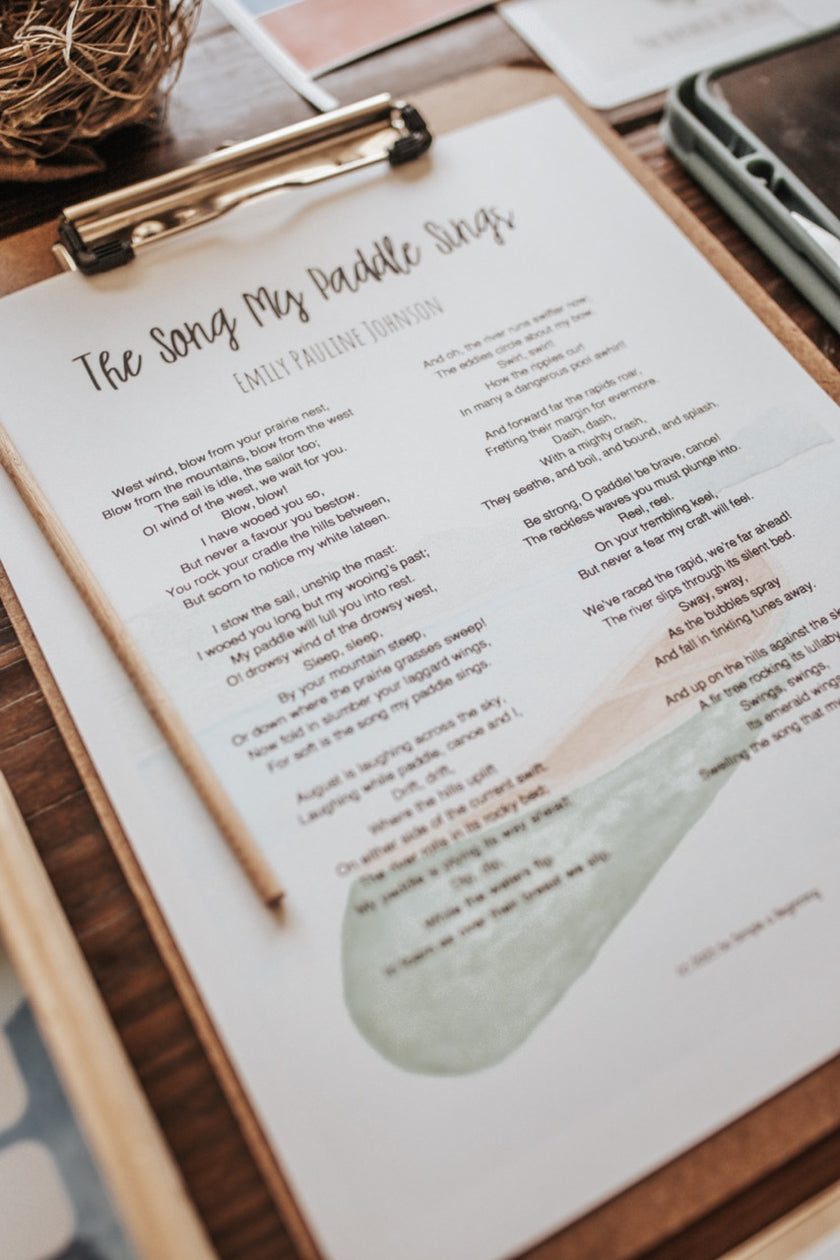 The Song My Paddle Sings
Emily Pauline Johnson
West wind, blow from your prairie nest,
Blow from the mountains, blow from the west
The sail is idle, the sailor too;
O! wind of the west, we wait for you.
Blow, blow!
I have wooed you so,
But never a favour you bestow.
You rock your cradle the hills between,
But scorn to notice my white lateen.
I stow the sail, unship the mast:
I wooed you long but my wooing's past;
My paddle will lull you into rest.
O! drowsy wind of the drowsy west,
Sleep, sleep,
By your mountain steep,
Or down where the prairie grasses sweep!
Now fold in slumber your laggard wings,
For soft is the song my paddle sings.
August is laughing across the sky,
Laughing while paddle, canoe and I,
Drift, drift,
Where the hills uplift
On either side of the current swift.
The river rolls in its rocky bed;
My paddle is plying its way ahead;
Dip, dip,
While the waters flip
In foam as over their breast we slip.
And oh, the river runs swifter now;
The eddies circle about my bow.
Swirl, swirl!
How the ripples curl
In many a dangerous pool awhirl!
And forward far the rapids roar,
Fretting their margin for evermore.
Dash, dash,
With a mighty crash,
They seethe, and boil, and bound, and splash.
Be strong, O paddle! be brave, canoe!
The reckless waves you must plunge into.
Reel, reel.
On your trembling keel,
But never a fear my craft will feel.
We've raced the rapid, we're far ahead!
The river slips through its silent bed.
Sway, sway,
As the bubbles spray
And fall in tinkling tunes away.
And up on the hills against the
A fir tree rocking its lullaby
Swings, swings,
Its emerald wings
Swelling the song that my